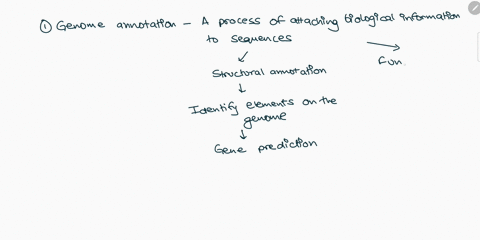 ① Genome annotation - A process of attaching biological information
to sequences
Structural annotation
Fun
Identify elements on the
genome
Gene prediction